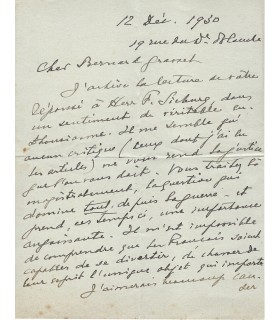 12 Déc. 1930
19 rue du Dr Blanche
Cher Bernard Grasset
J'achève la lecture de votre
réponse à Herr F. Sieburg dans
un sentiment de véritable en-
thousiasme. Il me semble qu'
aucun critique (ceux dont j'ai lu
les articles) ne vous rend la justice
que l'on vous doit. Vous traitez là
magistralement, la question qui
domine tout, depuis la guerre - et
prend, ces temps-ci, une importance
angoissante. Il m'est impossible
de comprendre que les Français soient
capables de se divertir, de chasser de
leur esprit l'unique objet qui importe
J'aimerais beaucoup cau-
ser